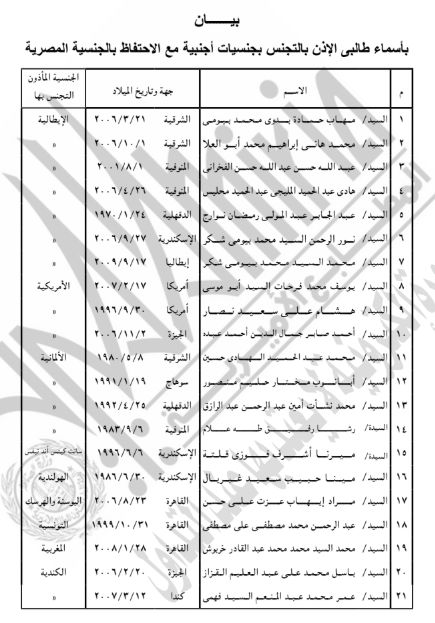 بيـــان
بأسماء طالبى الإذن بالتجنس بجنسيات أجنبية مع الاحتفاظ بالجنسية المصرية
م الاســـم جهة وتاريخ الميلاد الجنسية المأذون التجنس بها
١ السيد/ مهاب حمادة بدوى محمد بيومى الشرقية ٢٠٠٦/٣/٢١ الإيطالية
٢ السيد/ محمد هانى إبراهيم محمد أبو العلا الشرقية ٢٠٠٦/١٠/١ »
٣ السيد/ عبد الله حسن عبد الله حسن الفخرانى المنوفية ٢٠٠١/٨/١ »
٤ السيد/ هادى عبد الحميد المليجى عبد الحميد محليس المنوفية ٢٠٠٦/٤/٢٦ »
٥ السيد/ عبد الجابر عبد المولى رمضان نورج الدقهلية ١٩٧٠/١/٢٤ »
٦ السيد/ نور الرحمن السيد محمد بيومى شكر الإسكندرية ٢٠٠٦/٩/٢٧ »
٧ السيد/ محمد السيد محمد بيومى شكر إيطاليا ٢٠٠٩/٩/١٧ »
٨ السيد/ يوسف محمد فرحات السيد أبو موسى أمريكا ٢٠٠٧/٢/١٧ الأمريكية
٩ السيد/ هشام على سعيد نصار أمريكا ١٩٩٦/٩/٣٠ »
١٠ السيد/ أحمد صابر جمال الدين أحمد عبده الجيزة ٢٠٠٦/١١/٢ »
١١ السيد/ محمد عبد الحميد الهادى حسين الشرقية ١٩٨٠/٥/٨ الألمانية
١٢ السيد/ أبانوب مختار حليم منصور سوهاج ١٩٩١/١/١٩ »
١٣ السيد/ محمد نشأت أمين عبد الرحمن عبد الرازق الدقهلية ١٩٩٢/٤/٢٥ »
١٤ السيدة/ رشا رفيق طه علام المنوفية ١٩٨٣/٩/٦ »
١٥ السيدة/ ميرنا أشرف فوزى قلتة الإسكندرية ١٩٩٦/٦/٦ سانت كيتس أند نيفس
١٦ السيد/ مينا حبيب سعيد غبريال الإسكندرية ١٩٨٦/٦/٣٠ الهولندية
١٧ السيد/ مراد إيهاب عزت على حسن القاهرة ٢٠٠٦/٨/٢٣ البوسنة والهرسك
١٨ السيد/ عبد الرحمن محمد مصطفى على مصطفى القاهرة ١٩٩٩/١٠/٣١ التونسية
١٩ السيد/ محمد السيد محمد محمد عبد القادر خربوش القاهرة ٢٠٠٨/١/٢٨ المغربية
٢٠ السيد/ باسل محمد على عبد العليم القزاز الجيزة ٢٠٠٦/٢/٢٠ الكندية
٢١ السيد/ عمر محمد عبد المنعم السيد فهمى كندا ٢٠٠٧/٣/١٢ »